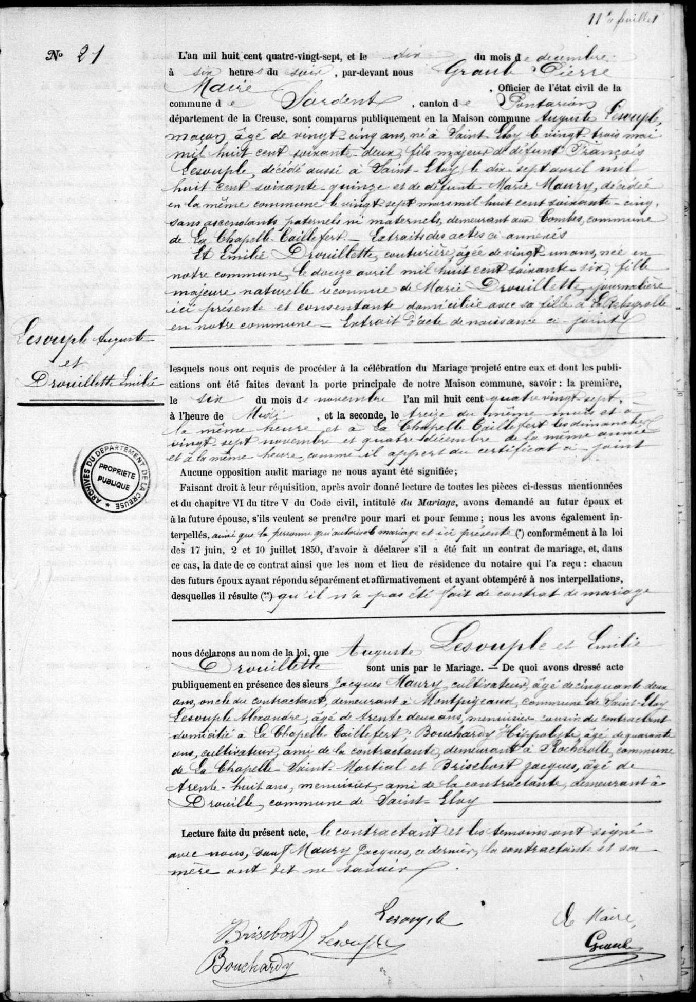 11e feuillet
No 21
L'an mil huit cent quatre-vingt-sept, et le six du mois de décembre
à six heures du soir, par-devant nous Graub Pierre
Maire, Officier de l'état civil de la
commune de Sardent, canton de Pontarion
département de la Creuse, sont comparus publiquement en la Maison commune Auguste Lesouple,
maçon, âgé de vingt cinq ans, né à Saint-Eloy le vingt trois mai
mil huit cent soixante deux, fils majeur de défunt François
Lesouple, décédé aussi à Saint-Eloy le dix sept avril mil
huit cent soixante quinze et de défunte Marie Maury, décédée
en la même commune le vingt sept mars mil huit cent soixante-cinq,
sans ascendants paternels ni maternels, demeurant aux Combes, commune
de La Chapelle Taillefert — Extraits des actes ci annexés
Et Emilie Drouillette, couturière, âgée de vingt un ans, née en
notre commune le douze avril mil huit cent soixante six, fille
majeure naturelle reconnue de Marie Drouillette, journalière
ici présente et consentante domiciliée avec sa fille à
en notre commune — Extrait d'acte de naissance ci joint
Lesouple Auguste
et
Drouillette Emilie
lesquels nous ont requis de procéder à la célébration du Mariage projeté entre eux et dont les publi-
cations ont été faites devant la porte principale de notre Maison commune, savoir : la première,
le six du mois de novembre l'an mil huit cent quatre vingt sept
à l'heure de Midi, et la seconde, le treize du même mois et à
la même heure et à La Chapelle Taillefert les dimanches
vingt sept novembre et quatre décembre de la même année
et à la même heure comme il appert du certificat ci joint
Aucune opposition audit mariage ne nous ayant été signifiée;
Faisant droit à leur réquisition, après avoir donné lecture de toutes les pièces ci-dessus mentionnées
et du chapitre VI du titre V du Code civil, intitulé du Mariage, avons demandé au futur époux et
à la future épouse, s'ils veulent se prendre pour mari et pour femme; nous les avons également in-
terpellés, ainsi que la personne qui autorise le mariage et ici présente (*) conformément à la loi
des 17 juin, 2 et 10 juillet 1850, d'avoir à déclarer s'il a été fait un contrat de mariage, et, dans
ce cas, la date de ce contrat ainsi que les nom et lieu de résidence du notaire qui l'a reçu : chacun
des futurs époux ayant répondu séparément et affirmativement et ayant obtempéré à nos interpellations,
desquelles il résulte (**) qu'il n'a pas été fait de contrat de mariage
ARCHIVES DU DÉPARTEMENT DE LA CREUSE
PROPRIÉTÉ
PUBLIQUE
nous déclarons au nom de la loi, que Auguste Lesouple et Emilie
Drouillette sont unis par le Mariage. — De quoi avons dressé acte
publiquement en présence des sieurs Jacques Maury, cultivateur, âgé de cinquante deux
ans, oncle du contractant, demeurant à Montpigeaud, commune de Saint-Eloy
Lesouple Alexandre, âgé de trente deux ans, menuisier, cousin du contractant
domicilié à La Chapelle Taillefert; Bouchardy Hippolyte âgé de quarante
ans, cultivateur, ami de la contractante, demeurant à Rocherolle, commune
de La Chapelle Saint-Martial et Brisebost Jacques, âgé de
trente-huit ans, menuisier, ami de la contractante, demeurant à
Drouille, commune de Saint-Eloy
Lecture faite du présent acte, le contractant et les témoins ont signé
avec nous, sauf Maury Jacques, ce dernier, la contractante et sa
mère ont dit ne savoir.
Lesouple
Brisebost Lesouple
Bouchardy
Le Maire
Graub